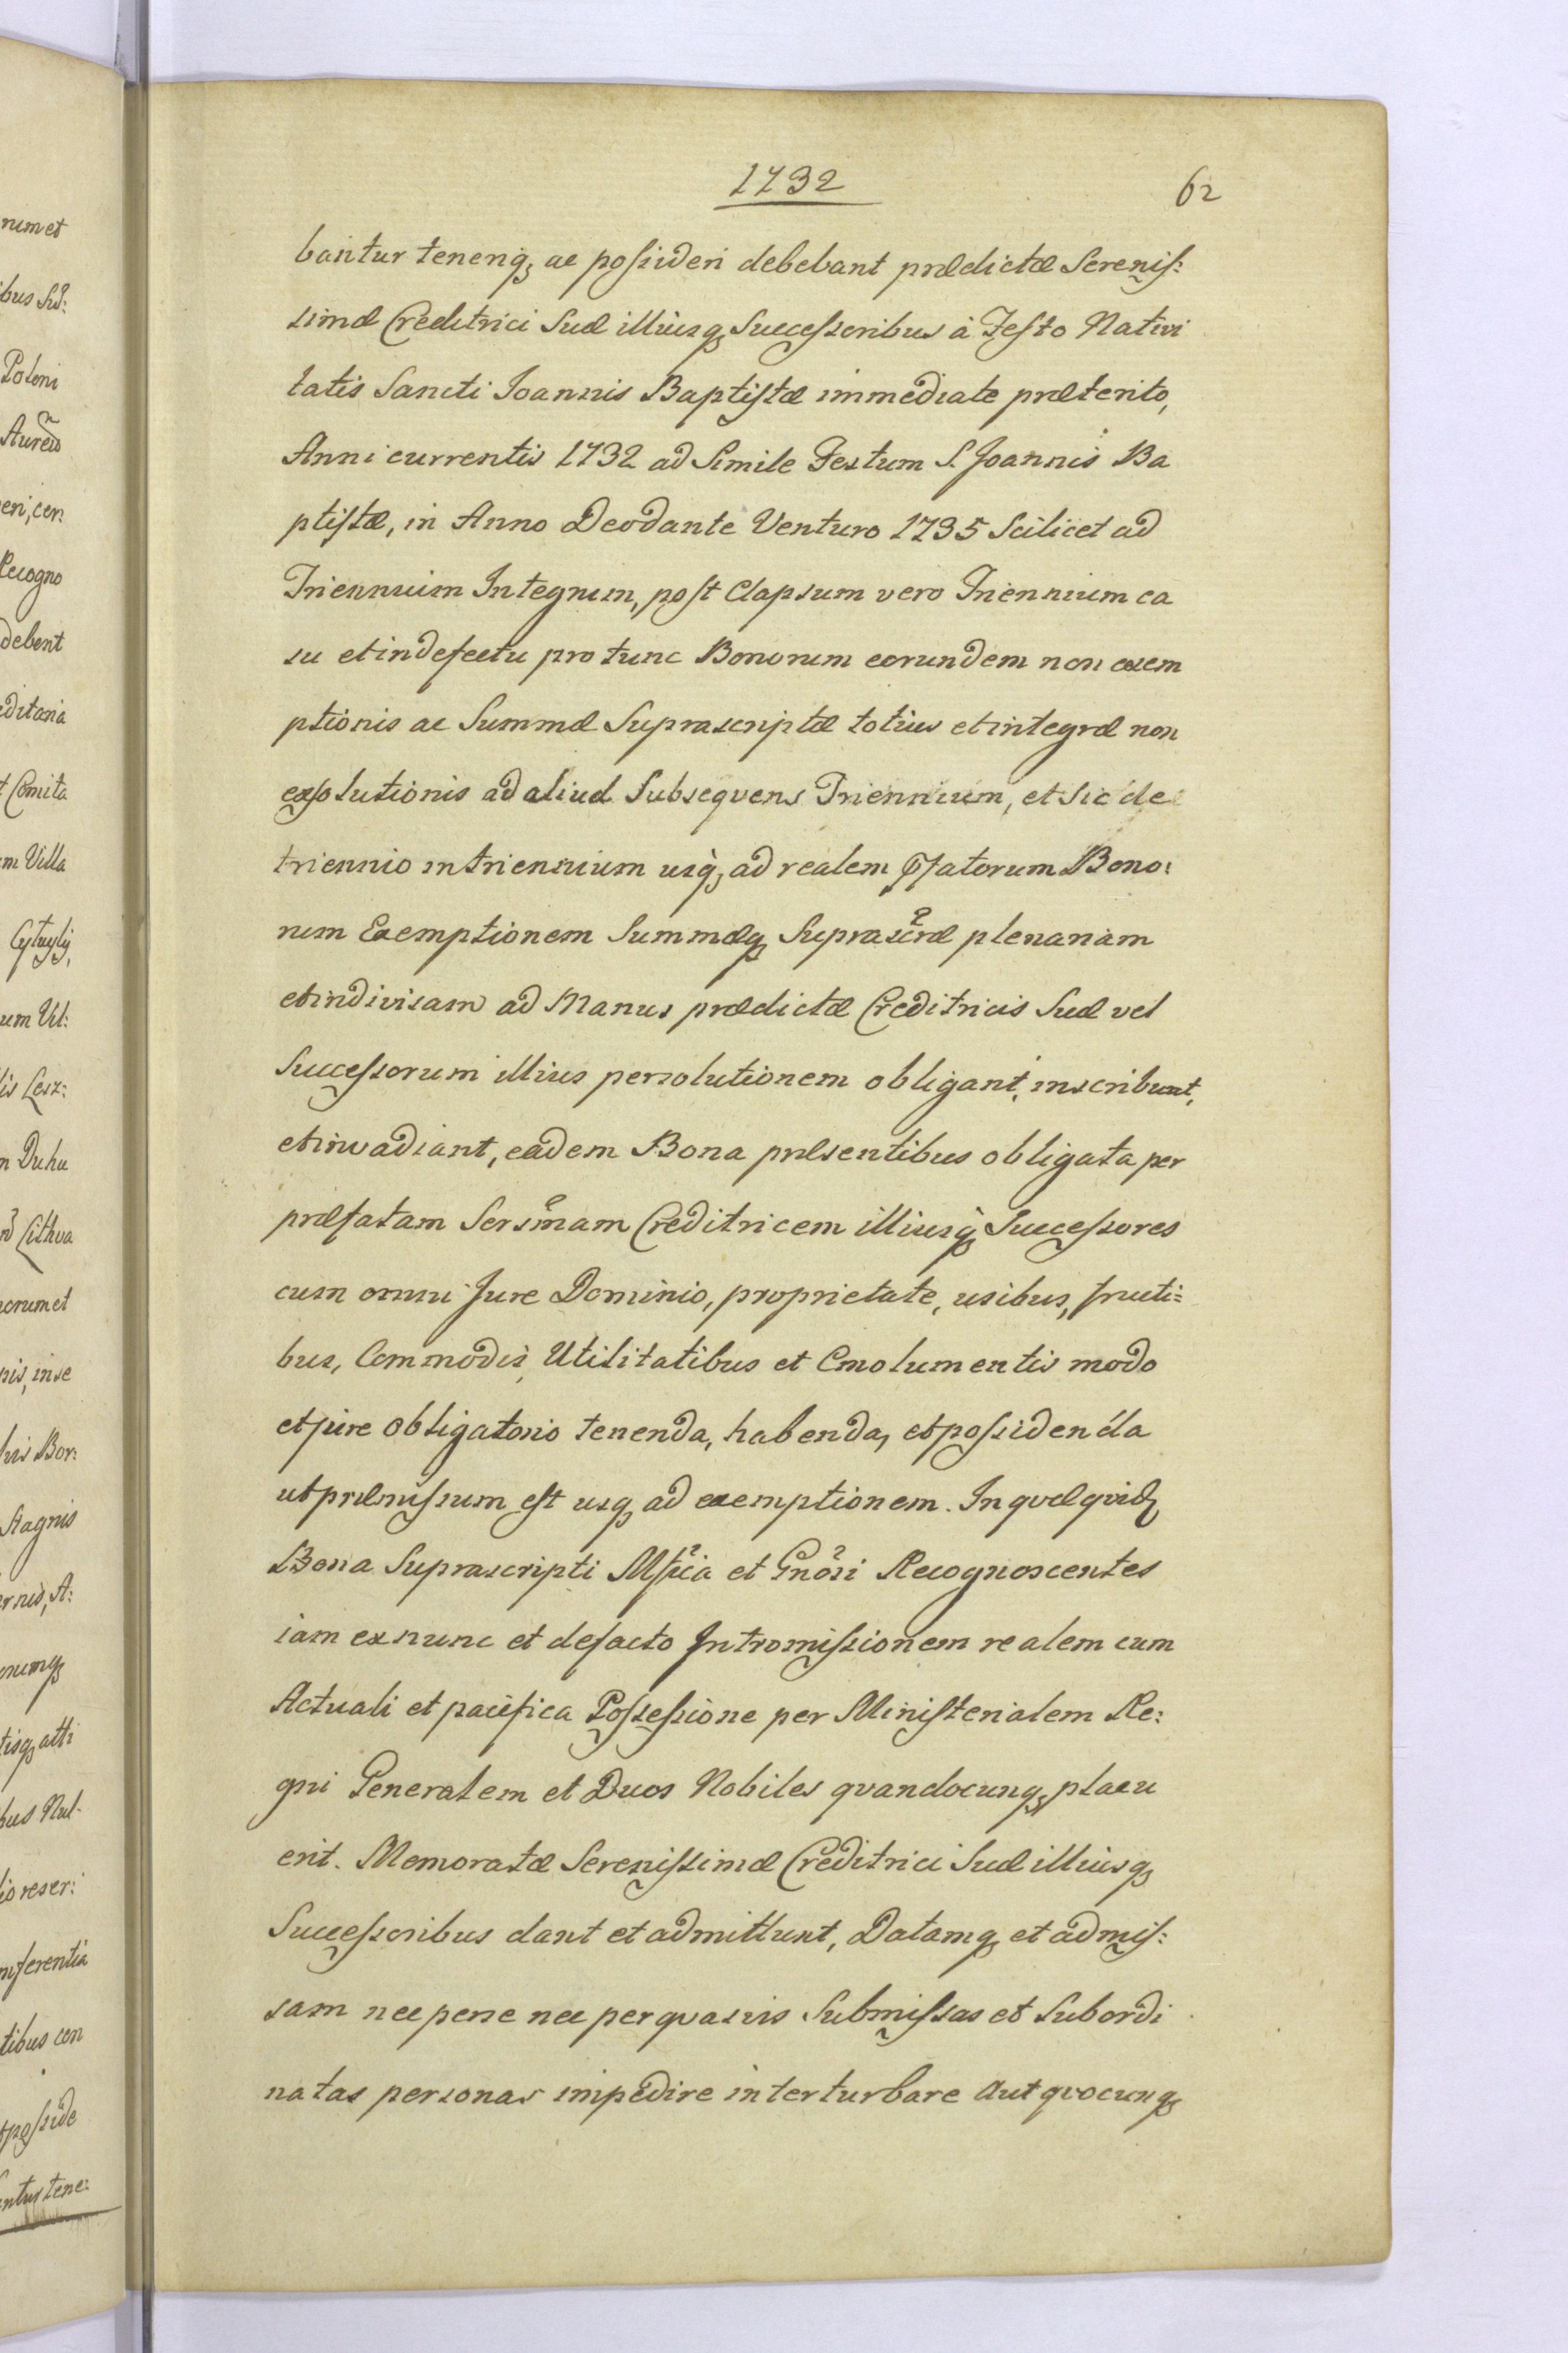 1732
62
bantur teneriq, ac possideri debebant prædictæ Serenis:
simæ Creditrici Suæ illiusq, Successoribus à Festo Nativi
tatis Sancti Joannis Baptistæ immediate præterito,
Anni currentis 1732 ad Simile Festum S. Joannis Ba
ptistæ, in Anno Deodante Venturo 1735 Scilicet ad
Triennium Integrum, post Elapsum vero Triennium ca
su et in defectu pro tunc Bonorum eorundem non exem
ptionis ac Summæ Suprascriptæ totius et integræ non
exsolutionis ad aliud Subsequens Triennium, et sic de
triennio in triennium usq, ad realem pfatorum Bono:
rum Exemptionem Summæq, Suprascræ plenariam
et indivisam ad Manus prædictæ Creditricis Suæ vel
Successorum illius persolutionem obligant, inscribunt,
et invadiant, eadem Bona præsentibus obligata per
præfatam Sersmam Creditricem illiusq, Successores
cum omni Jure Dominio, proprietate, usibus, fructi=
bus, Commodis, Utilitatibus et Emolumentis modo
et jure obligatorio tenenda, habenda, et possidenda
ut præmissum est usq, ad exemptionem. In qvæ qvidē
Bona Suprascripti Mfici et Gnosi Recognoscentes
iam ex nunc et defacto Intromissionem realem cum
Actuali et pacifica Possessione per Ministerialem Re:
gni Generalem et Duos Nobiles qvandocunq, placu
erit. Memoratæ Serenissimæ Creditrici Suæ illiusq,
Successoribus dant et admittunt, Datamq, et admis:
sam nec per se nec per qvasvis Submissas et Subordi
natas personas impedire interturbare Aut qvocunq,